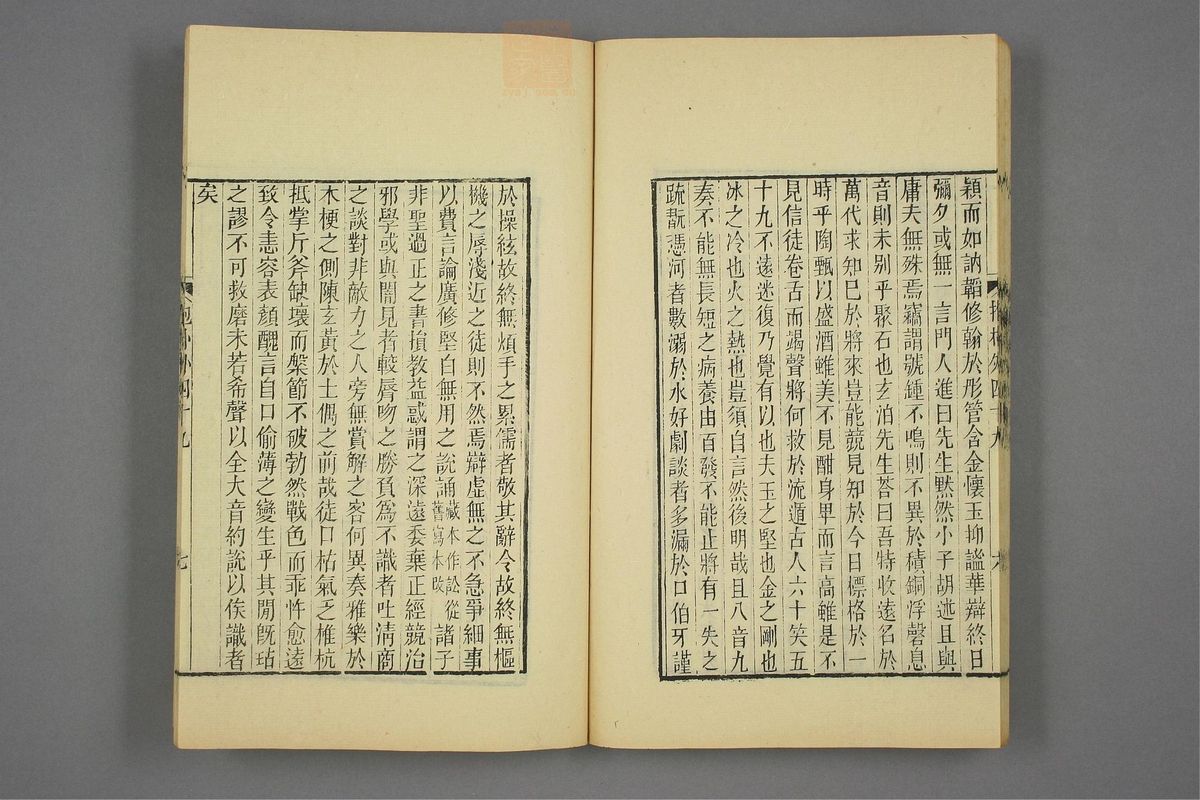 穎而如訥韜修翰於彤管含金懷玉抑謐華辯終日
彌夕或無一言門人進曰先生默然小子胡述且與
庸夫無殊焉竊謂號鍾不鳴則不異於積銅浮磬息
音則未別乎聚石也玄泊先生荅曰吾特收遠名於
萬代求知己於將來豈能競見知於今日標格於一
時乎陶甄以盛酒雖美不見酣身卑而言高雖是不
見信徒卷舌而竭聲將何救於流遁古人六十笑五
十九不遠迷復乃覺有以也夫玉之堅也金之剛也
冰之冷也火之熱也豈須自言然後明哉且八音九
奏不能無長短之病養由百發不能止將有一失之
疏翫憑河者數溺於水好劇談者多漏於口伯牙謹
於操絃故終無煩手之累儒者敬其辭令故終無樞
機之辱淺近之徒則不然焉辯虛無之不急爭細事
以費言論廣修堅白無用之說誦藏本作訟從舊寫本改諸子
非聖過正之書損教益惑謂之深遠委棄正經競治
邪學或與闇見者較脣吻之勝負爲不識者吐淸商
之談對非敵力之人旁無賞解之客何異奏雅樂於
木梗之側陳玄黃於土偶之前哉徒口枯氣乏椎杭
抵掌斤斧缺壞而槃節不破勃然戰色而乖忤愈遠
致令恚容表顏醜言自口偷薄之變生乎其閒旣玷
之謬不可救磨未若希聲以全大音約說以俟識者
矣
七